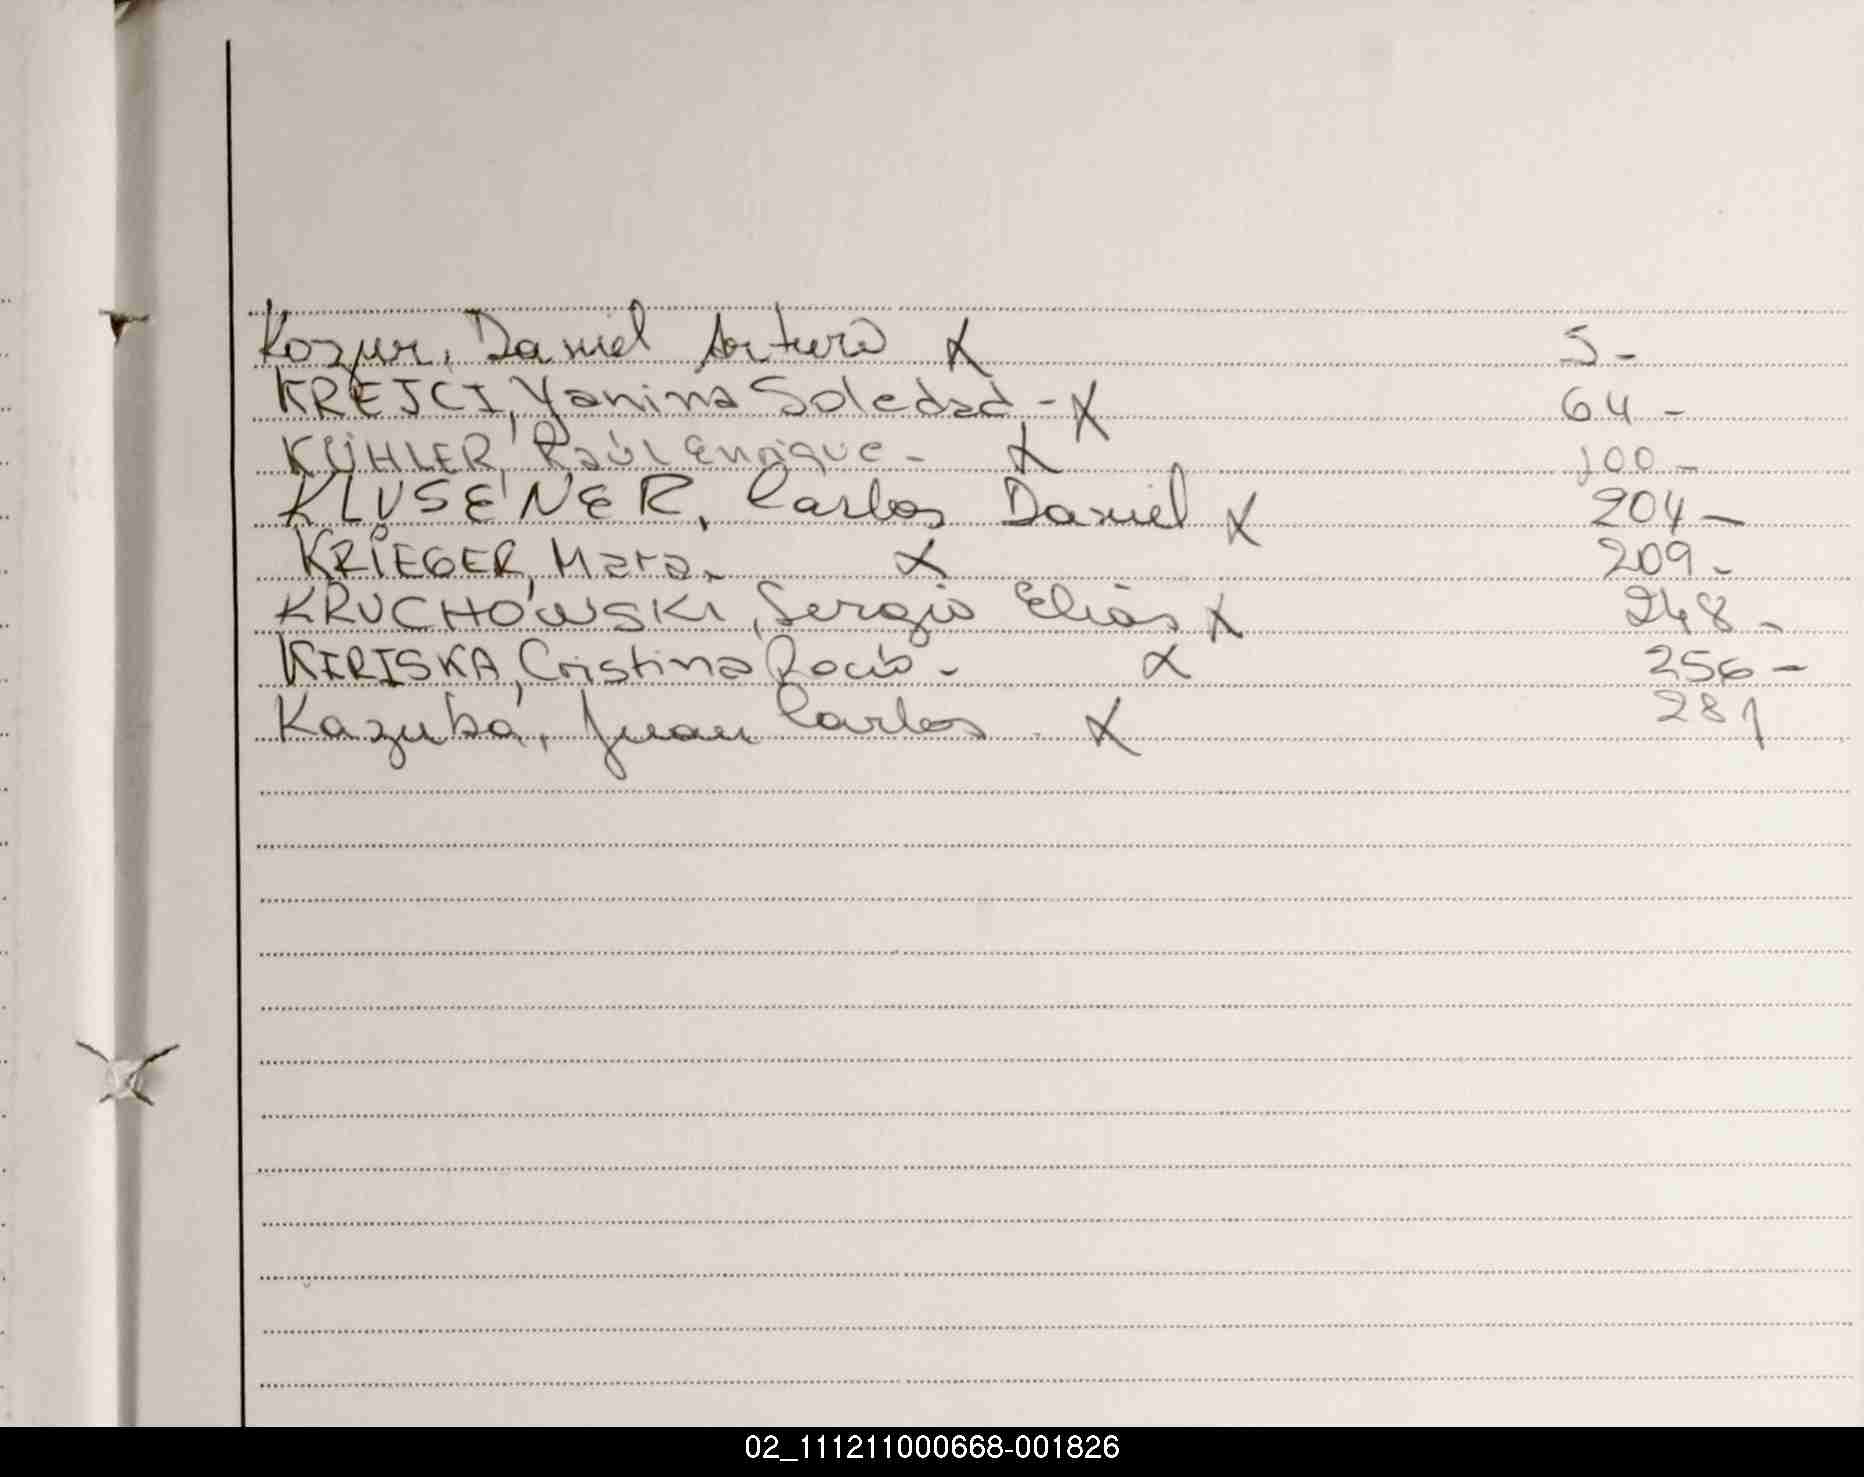 Kozur, Daniel Arturo X 5-
KREJCI, Yanina Soledad - X 64-
KÜHLER, Raúl Enrique - X 100-
KLUSENER, Carlos Daniel X 204-
KRIEGER, Mara. X 209-
KRUCHOWSKI, Sergio Elías X 248-
KIRISKA, Cristina Rocío - X 256-
Kazuba, Juan Carlos. X 281
02_111211000668-001826